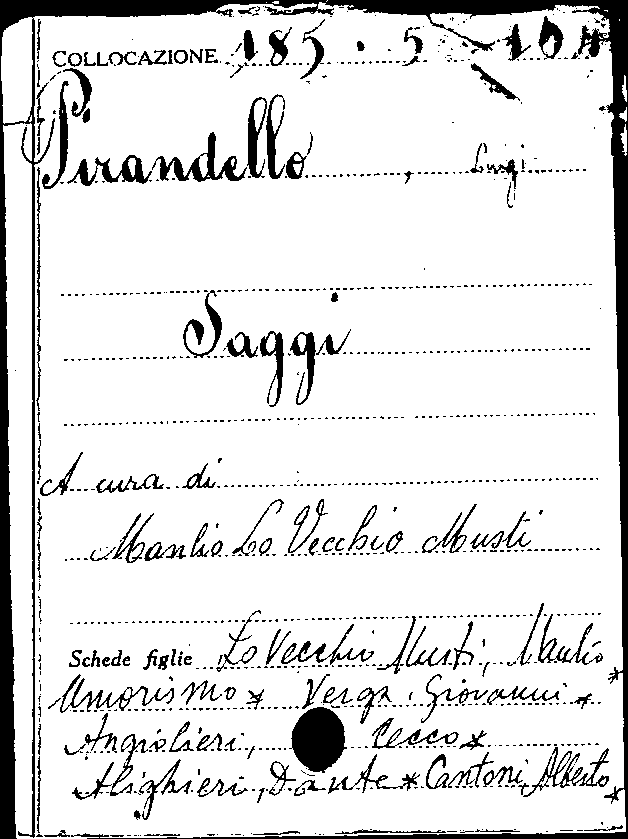 COLLOCAZIONE 185 . 5 104
Pirandello, Luigi
Saggi
A cura di
Manlio Lo Vecchio Musti
Schede figlie Lo Vecchio Musti, Manlio *
Umorismo * Verga, Giovanni *
Angiolieri, Cecco *
Alighieri, Dante * Cantoni, Alberto *